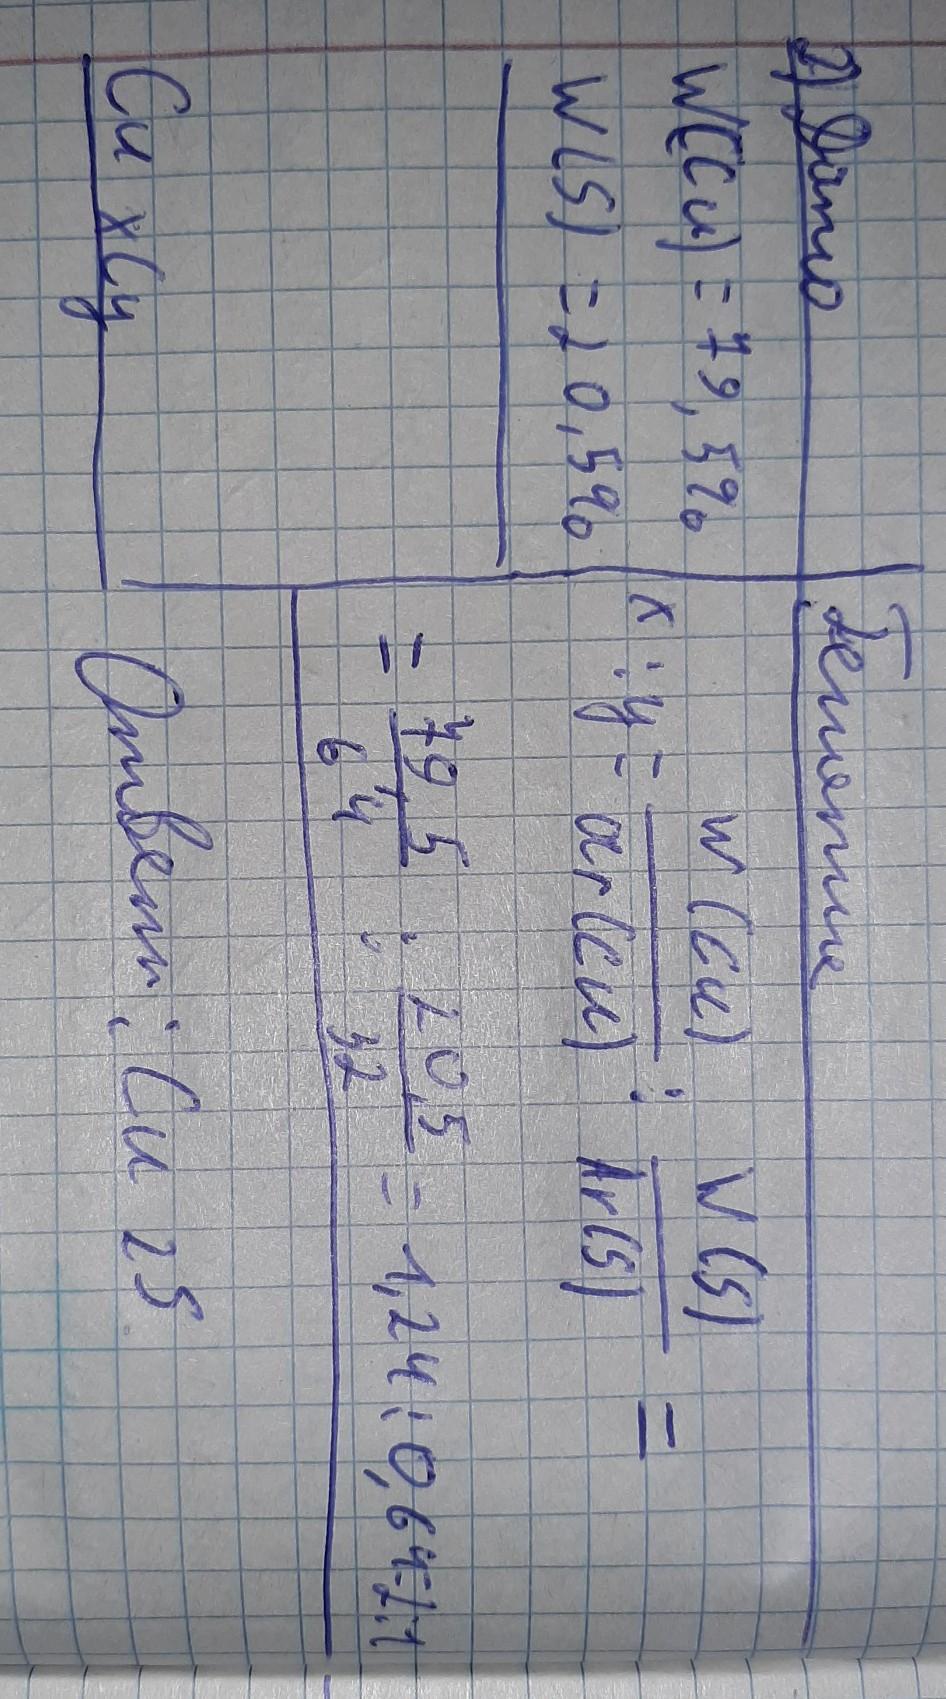 2) Дано
W(Cu) = 79,5%
W(S) = 20,5%
Cu xCy
Решение
x : y = W(Cu) / ar(Cu) : W(S) / Ar(S) =
= 79,5 / 64 : 20,5 / 32 = 1,24 : 0,64 = 2:1
Ответ: Cu 2S